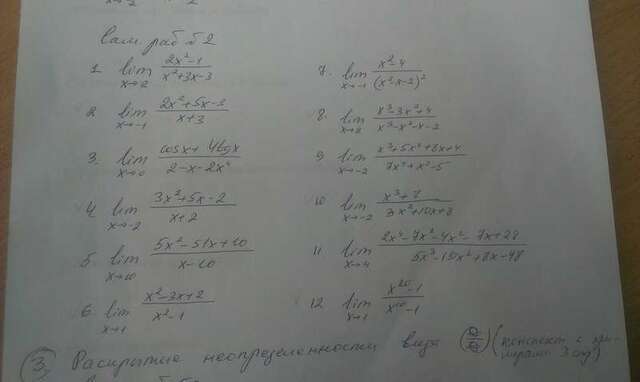 Сам. раб. № 2
1. lim x→2 (2x²-1)/(x²+3x-3)
2. lim x→-1 (2x²+5x-3)/(x+3)
3. lim x→0 (cosx + 4tgx)/(2-x-2x⁴)
4. lim x→-2 (3x²+5x-2)/(x+2)
5. lim x→10 (5x²-51x+10)/(x-10)
6. lim x→1 (x²-3x+2)/(x²-1)
7. lim x→-1 (x²-4)/(x²-x-2)²
8. lim x→2 (x³-3x²+4)/(x³-x²-x-2)
9. lim x→-2 (x³+5x²+8x+4)/(7x³+x²-5)
10. lim x→-2 (x³+8)/(3x²+10x+8)
11. lim x→4 (2x³-7x²-4x²-7x+28)/(5x³-19x²+8x-48)
12. lim x→1 (x²⁰-1)/(x¹⁰-1)
3. Раскрытие неопределенности вида (конспект с при-
мерами 3 стр)